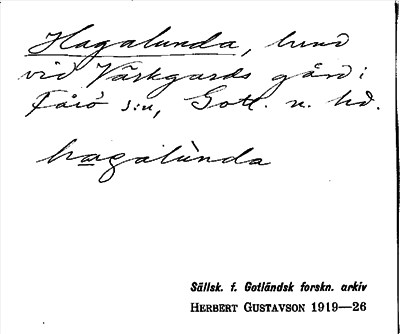 Hagalunda, lund
vid Värkgards gård i
Fårö s:n, Gotl. n. hd.
hagalùnda
Sällsk. f. Gotländsk forskn. arkiv
HERBERT GUSTAVSON 1919—26